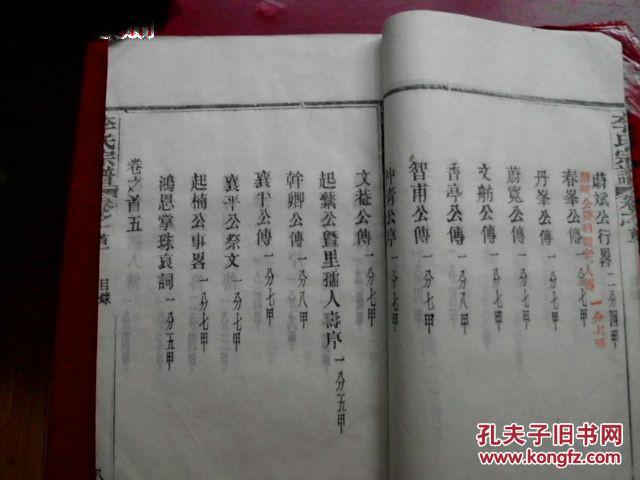 李氏宗譜
卷之首
蔚斌公行畧 一分四甲
一分七甲
春峯公傳 一分七甲
丹峯公傳 一分八甲
蔚寬公傳 一分七甲
文舫公傳 一分七甲
香亭公傳 一分八甲
智甫公傳 一分七甲
公序 一分七甲
文菴公傳 一分七甲
起紫公暨里孺人壽序 一分五甲
幹卿公傳 一分八甲
襄平公傳 一分七甲
襄平公祭文 一分七甲
起楠公事畧 一分七甲
鴻恩掌珠哀詞 一分五甲
卷之首五
李氏宗譜
卷之首
目錄
孔夫子旧书网
www.kongfz.com